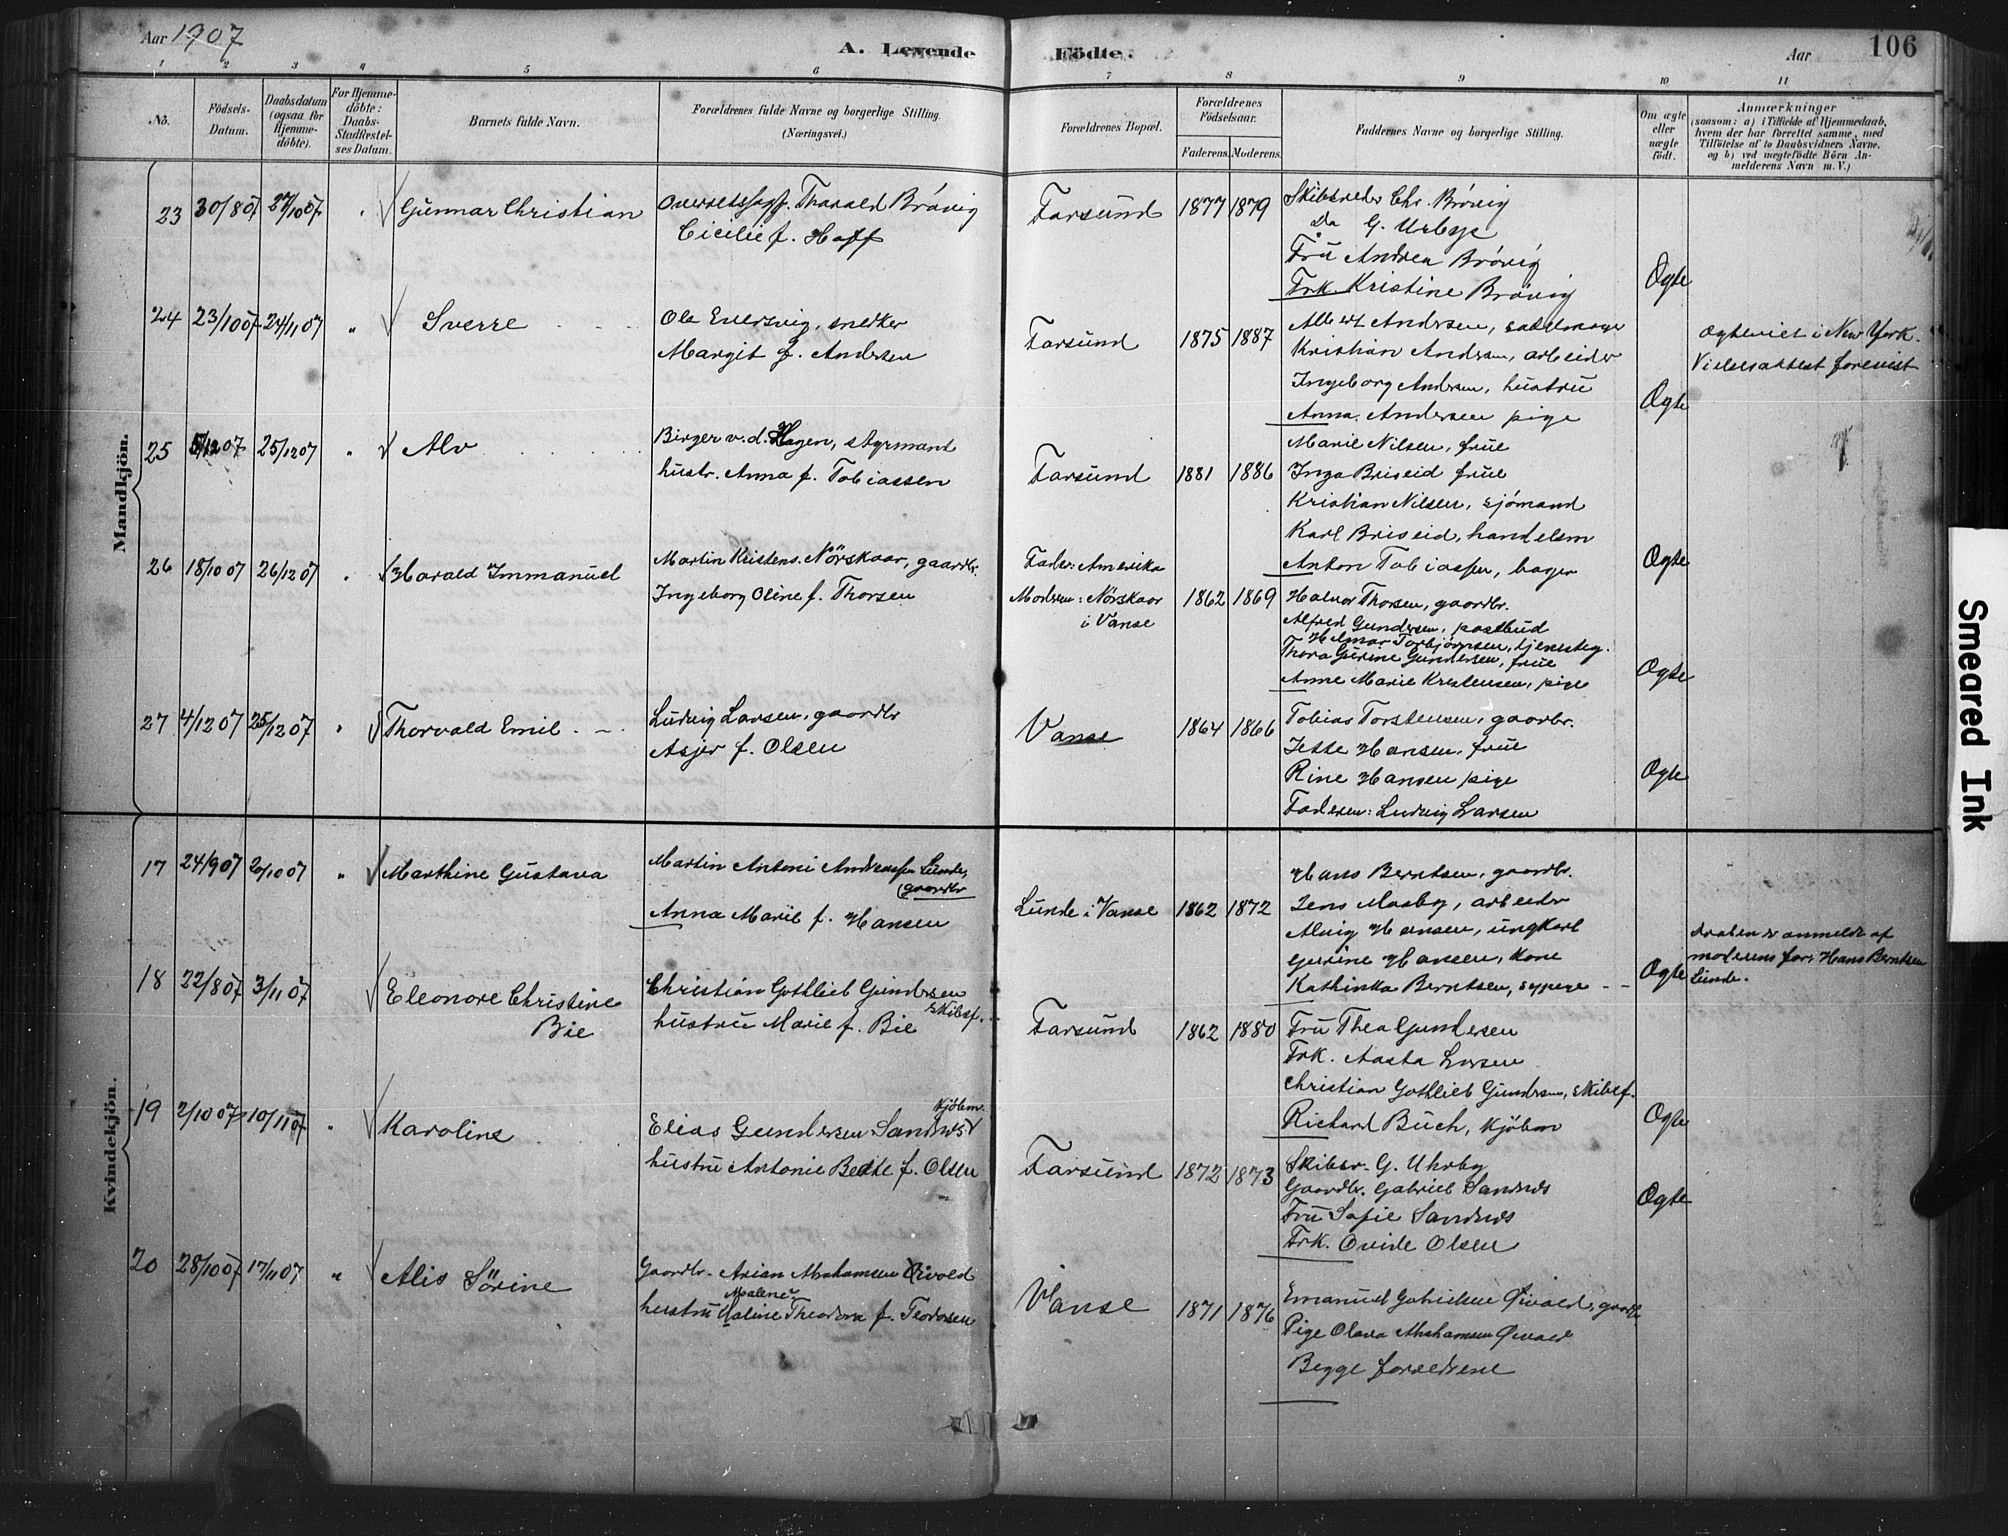 Aar 1907
A. Levende Födte.
Aar
106
1 2 3 4 5 6 7 8 9 10 11
No.
Födsels-Datum.
Daabsdatum (ogsaa for Hjemme-döbte).
For Hjemme-döbte: Daabs-Stadfæstel-ses Datum.
Barnets fulde Navn.
Forældrenes fulde Navne og borgerlige Stilling. (Næringsvei.)
Forældrenes Bopæl.
Forældrenes Födselsaar.
Faderens. Moderens.
Faddernes Navne og borgerlige Stilling.
Om ægte eller uægte födt.
Anmærkninger
(saasom: a) i Tilfælde af Hjemmedaab,
hvem der har forrettet samme, med
Tilföielse af to Daabsvidners Navne,
og b) ved uægtefödte Börn An-
melderens Navn m. V.)
Mandkjön.
23 30/8 07 27/10 07 Gunnar Christian
Overretssagf. Tharald Brövig
Cicilie f. Hoff
Farsund 1877 1879
Skibsreder Chr. Brövig
Do G. Urbye
Fru Andrea Brövig
Frk. Kristine Brövig
Ægte
24 23/10 07 24/11 07 " Sverre
Ole Eversvig, snedker
Margit f. Andersen
Farsund 1875 1887
Albert Andersen, sadelmager
Kristian Andersen, arbeider
Ingeborg Andersen, hustru
Anna Andersen pige
Ægte
Ægteviet i New York.
Vielsesattest forevist
25 5/12 07 25/12 07 " Alv
Birger v. d. Hagen, styrmand
hustr. Anna f. Tobiassen
Farsund 1881 1886
Marie Nilsen, frue
Inga Briseid frue
Kristian Nilsen, sjömand
Karl Briseid, handelsm
Anton Tobiassen, bager
Ægte
26 18/10 07 26/12 07 " Harald Immanuel
Martin Kristens. Nörskaar, gaardbr.
Ingeborg Oline f. Thorsen
Fader: Amerika
Moderen: Nörskaar
i Vanse
1862 1869
Halvor Thorsen, gaardbr.
Alfred Gundersen, postbud
Helmar Torbjörnsen, tjenesteg.
Thora Gurine Gundersen, frue
Anne Marie Kristensen, pige
Ægte
27 4/12 07 25/12 07 " Thorvald Emil
Ludvig Larsen, gaardbr
Asjer f. Olsen
Vanse 1864 1866
Tobias Torstensen, gaardbr.
Jette Hansen, frue
Rine Hansen pige
Faderen: Ludvig Larsen
Ægte
Kvindekjön.
17 24/9 07 20/10 07 " Marthine Gustava
Martin Antoni Andreassen Lunde,
gaardbr
Anna Marie f. Hansen
Lunde i Vanse 1862 1872
Hans Berntsen, gaardbr.
Jens Mosby, arbeider
Alvig Hansen, ungkarl
Gurine Hansen, kone
Kathinka Berntsen, sypige
Ægte
Daaben er anmeldt af
moderens far: Hans Berntsen
Lunde.
18 22/8 07 3/11 07 Eleonore Christine
Bie
Christian Gothlieb Gundersen
skibsf.
hustru Marie f. Bie
Farsund 1862 1880
Fru Thea Gundersen
Frk. Aasta Larsen
Christian Gothlieb Gundersen, skibsf.
Richard Buch, kjöbm
Ægte
19 2/10 07 10/11 07 " Karoline
kjöbm.
Elias Gundersen Sandnes
hustru Antonie Beate f. Olsen
Farsund 1872 1873
Skibsr. G. Uhrby
Gaardbr. Gabriel Sandnes
Fru Sofie Sandnes
Frk. Ovide Olsen
Ægte
20 28/10 07 17/11 07 " Alis Sörine
Gaardbr. Arian Abrahamsen Öivold
Malene
hustru Theodora f. Teodorsen
Vanse 1871 1876
Emanuel Gabrielsen Öivold, gaardbr
Pige Olava Abrahamsen Öivold
Begge forældrene
Smeared Ink